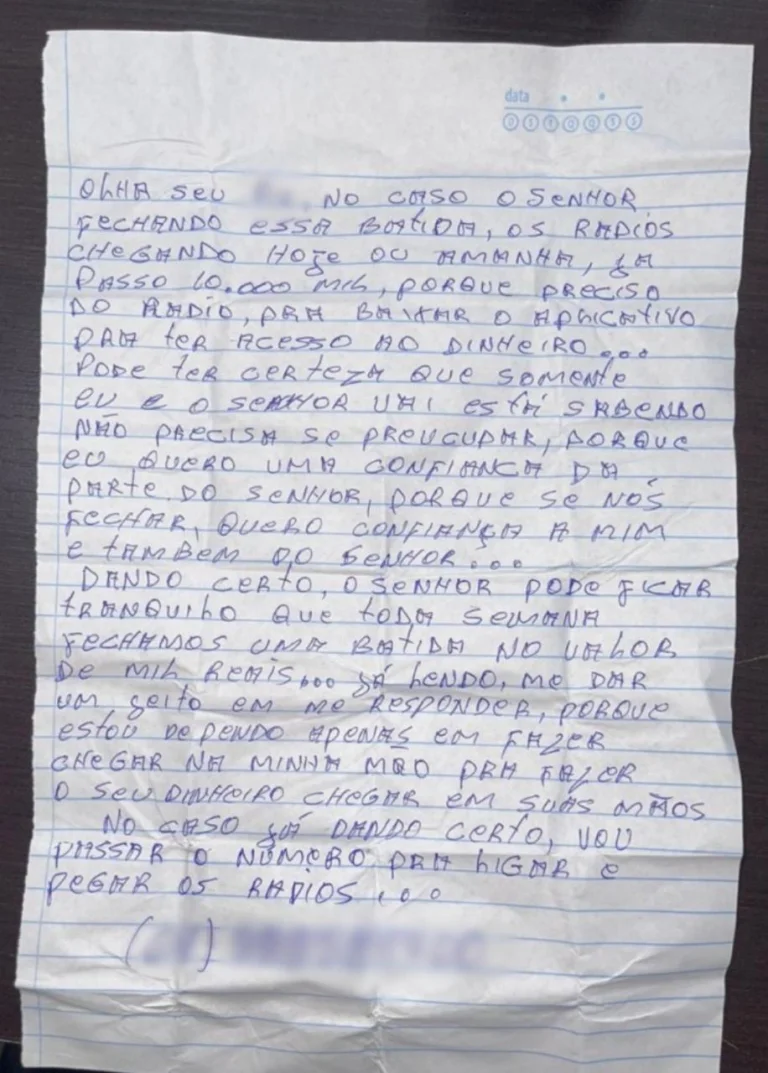 data
OLHA SEU NO CASO O SENHOR
FECHANDO ESSA BATIDA, OS RADIOS
CHEGANDO HOJE OU AMANHA, JA
PASSO 10.000 MIL, PORQUE PRECISO
DO RADIO, PRA BAIXAR O APLICATIVO
PRA TER ACESSO AO DINHEIRO...
PODE TER CERTEZA QUE SOMENTE
EU E O SENHOR VAI ESTÁ SABENDO
NÃO PRECISA SE PREUCUPAR, PORQUE
EU QUERO UMA CONFIANCA DA
PARTE DO SENHOR, PORQUE SE NÓS
FECHAR, QUERO CONFIANÇA A MIM
E TAMBEM DO SENHOR...
DANDO CERTO, O SENHOR PODE FICAR
TRANQUILO QUE TODA SEMANA
FECHAMOS UMA BATIDA NO VALOR
DE MIL REAIS... JÁ LENDO, ME DAR
UM JEITO EM ME RESPONDER, PORQUE
ESTOU DEPENDO APENAS EM FAZER
CHEGAR NA MINHA MÃO PRA FAZER
O SEU DINHEIRO CHEGAR EM SUAS MÃOS
NO CASO JÁ DANDO CERTO, VOU
PASSAR O NÚMERO PRA LIGAR E
PEGAR OS RADIOS...